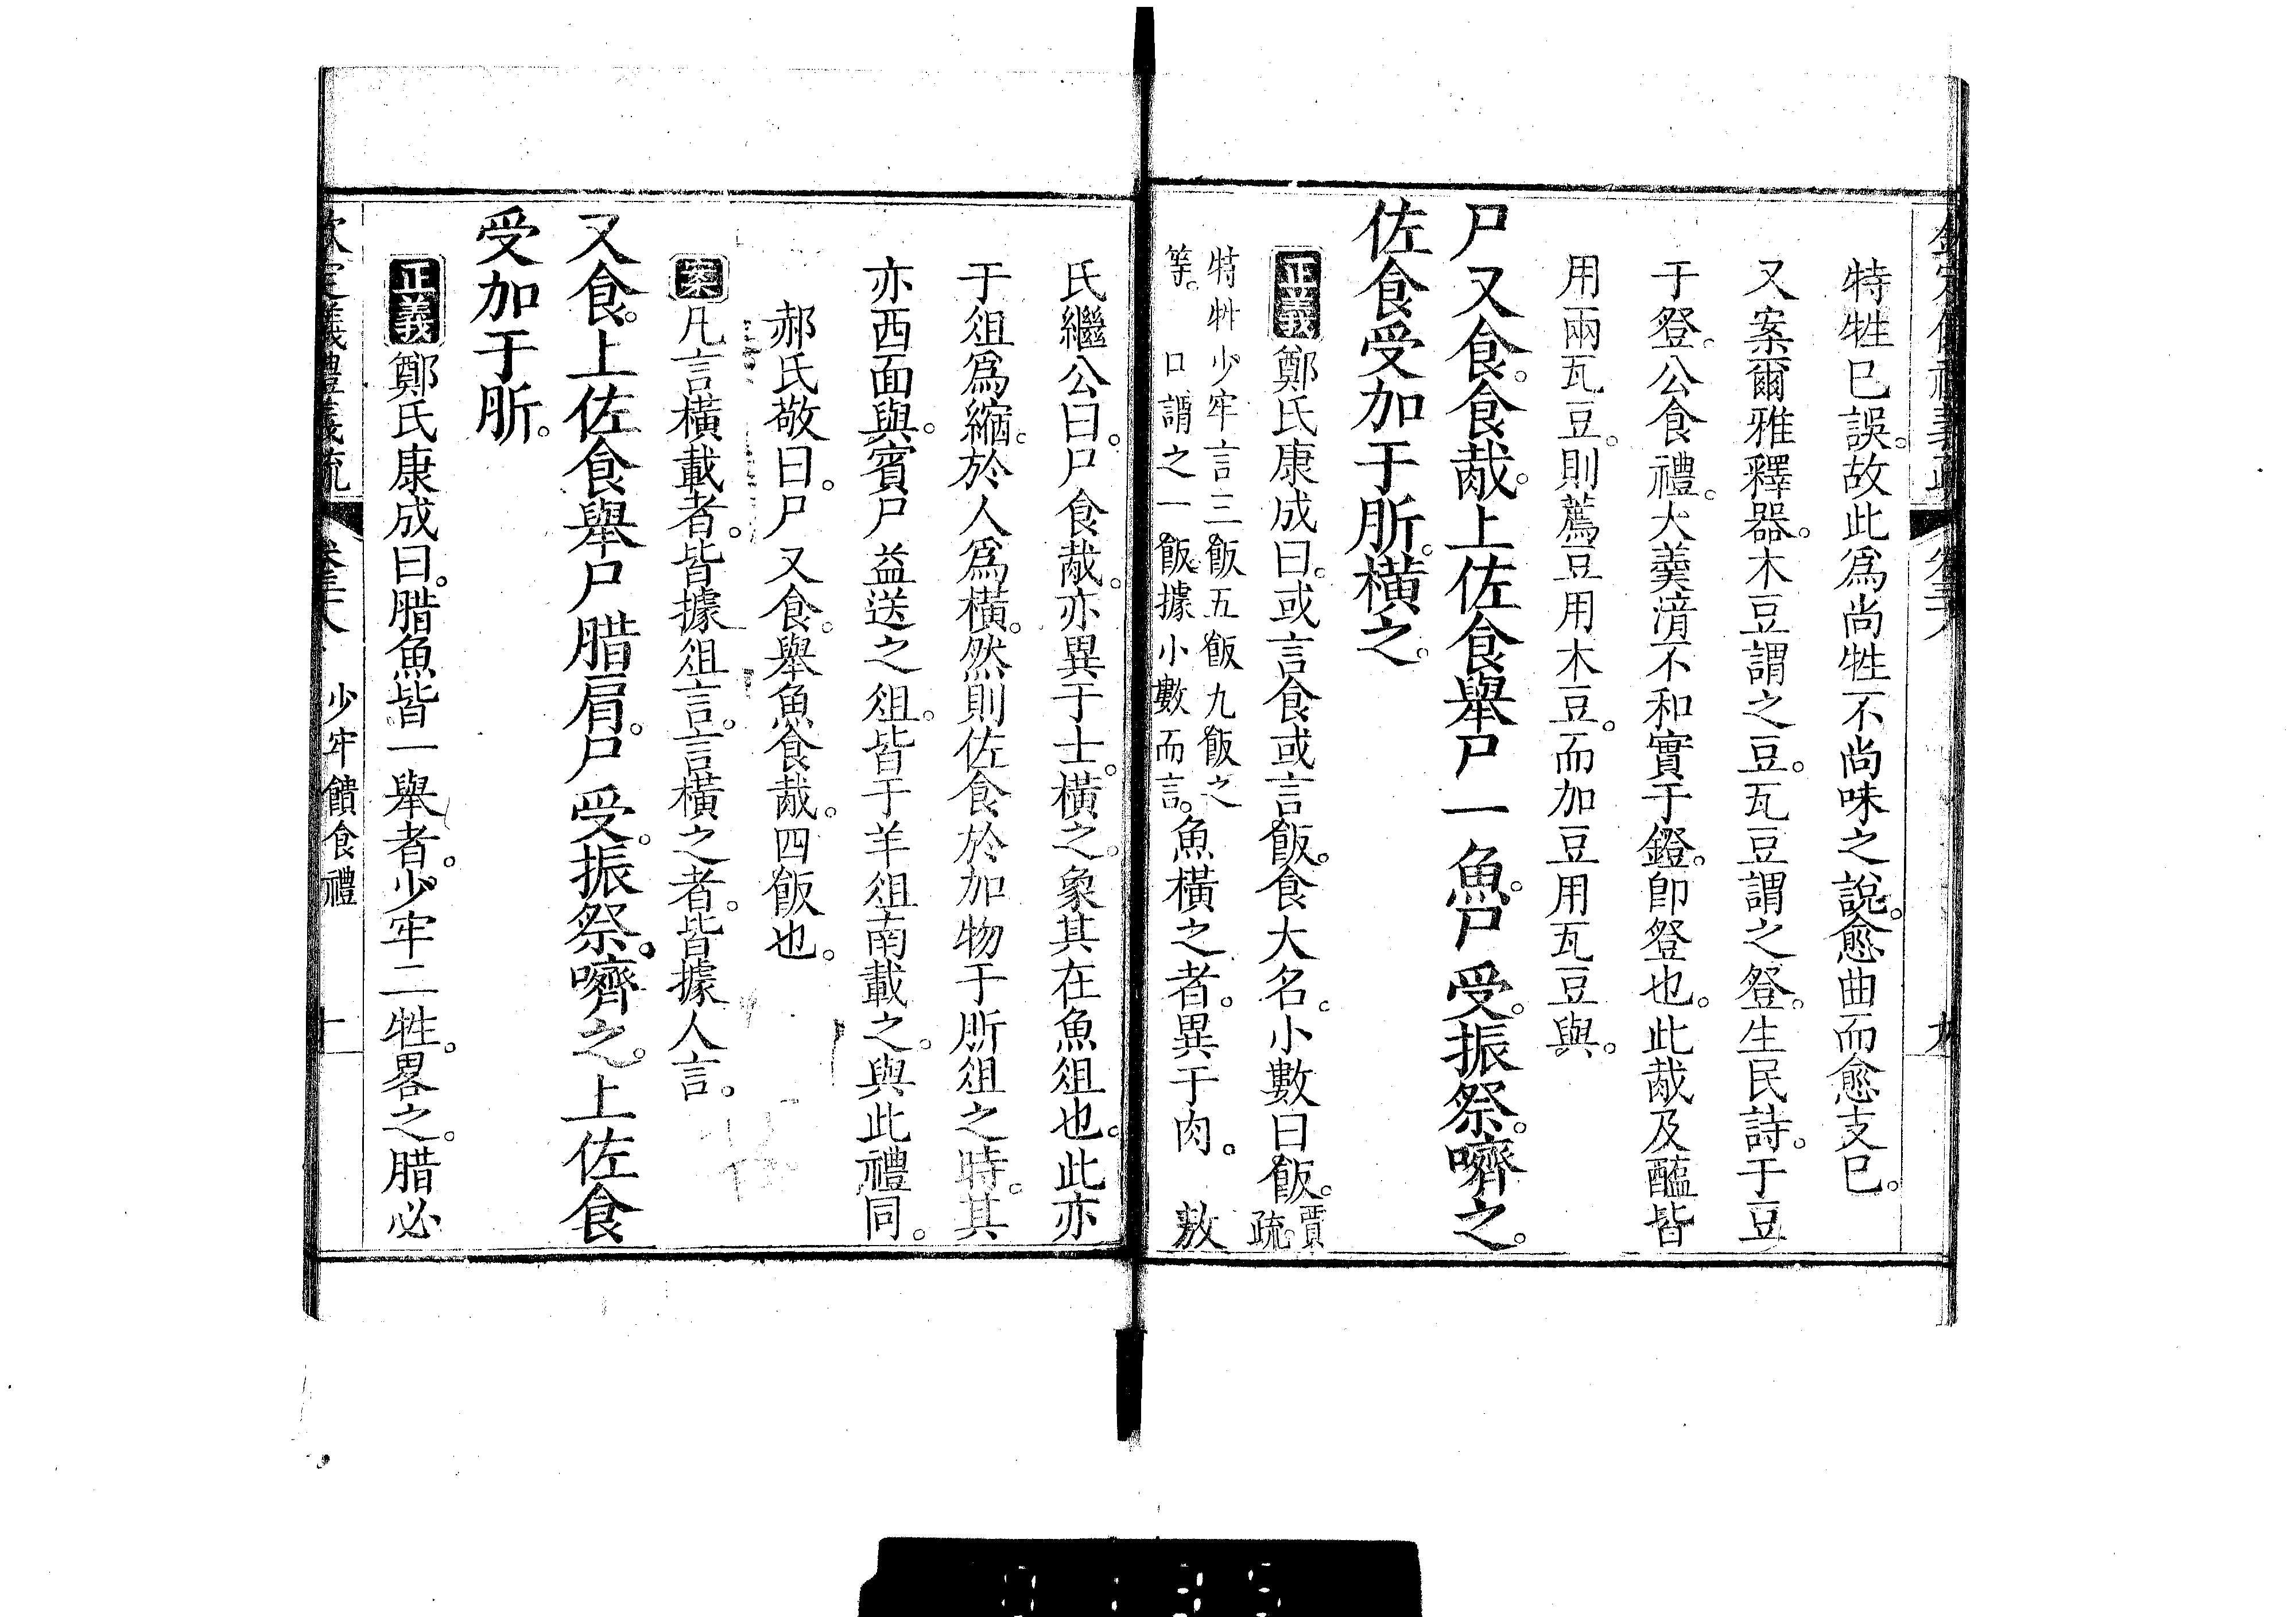 特牲已誤。故此爲尚牲不尚味之說。愈曲而愈支已。
又案爾雅釋器。木豆謂之豆。瓦豆謂之登。生民詩。于豆
于登。公食禮。大羹湆不和實于鐙。卽登也。此胾及醢皆
用兩瓦豆。則薦豆用木豆。而加豆用瓦豆與。
尸又食。食胾。上佐食舉尸一魚。尸受。振祭。嚌之。
佐食受加于肵。橫之。
正義鄭氏康成曰。或言食或言飯。食大名。小數曰飯。賈疏。
特牲少牢言三飯五飯九飯之
等。口謂之一飯。據小數而言。魚橫之者。異于肉。 敖
氏繼公曰。尸食胾。亦異于士。橫之。象其在魚俎也。此亦
于俎爲縮。於人爲橫。然則佐食於加物于肵俎之時。其
亦西面與。賓尸益送之俎。皆于羊俎南載之。與此禮同。
郝氏敬曰。尸又食。舉魚食胾。四飯也。
案凡言橫載者。皆據俎言。言橫之者。皆據人言。
又食。上佐食舉尸腊肩。尸受。振祭。嚌之。上佐食
受加于肵。
正義鄭氏康成曰。腊魚皆一舉者。少牢二牲。畧之。腊必
欽定儀禮義疏 卷三十八 少牢饋食禮 十